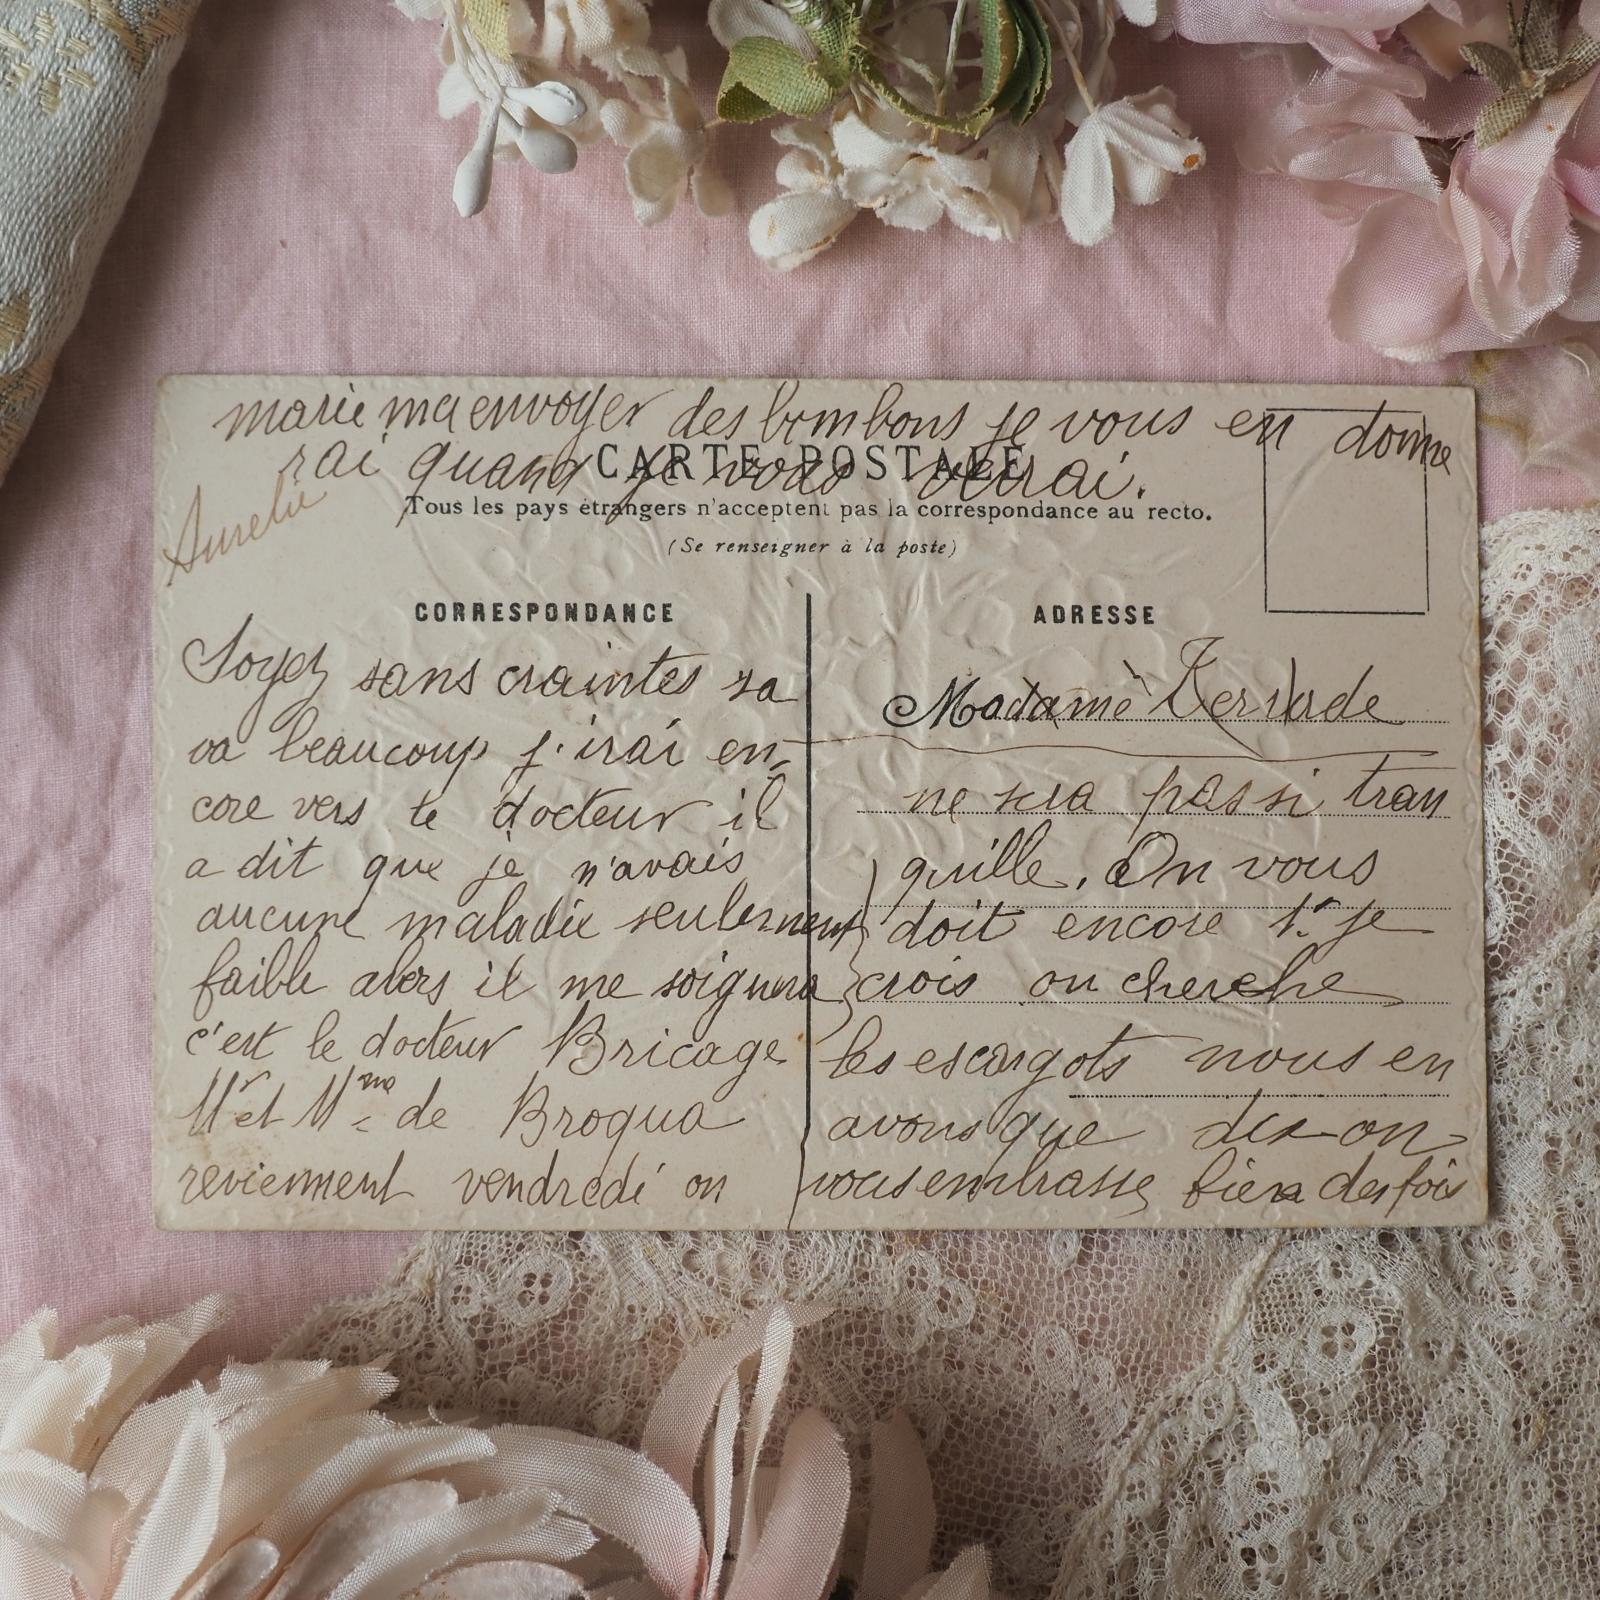 marie ma envoyer des bombons je vous en donne
rai quand je vous verai.
Aurelie
CARTE POSTALE
Tous les pays étrangers n'acceptent pas la correspondance au recto.
(Se renseigner à la poste)
CORRESPONDANCE
Soyez sans craintes sa
va beaucoup j'irai en-
core vers le docteur il
a dit que je n'avais
aucune maladie seulement
faible alors il me soignera
c'est le docteur Bricage
Mr et Mme de Broqua
reviennent vendredi on
ADRESSE
Madame
ne sera pas si tran
quille. On vous
doit encore 1f je
crois on cherche
les escargots nous en
avons que dix on
vous embrasse bien des fois